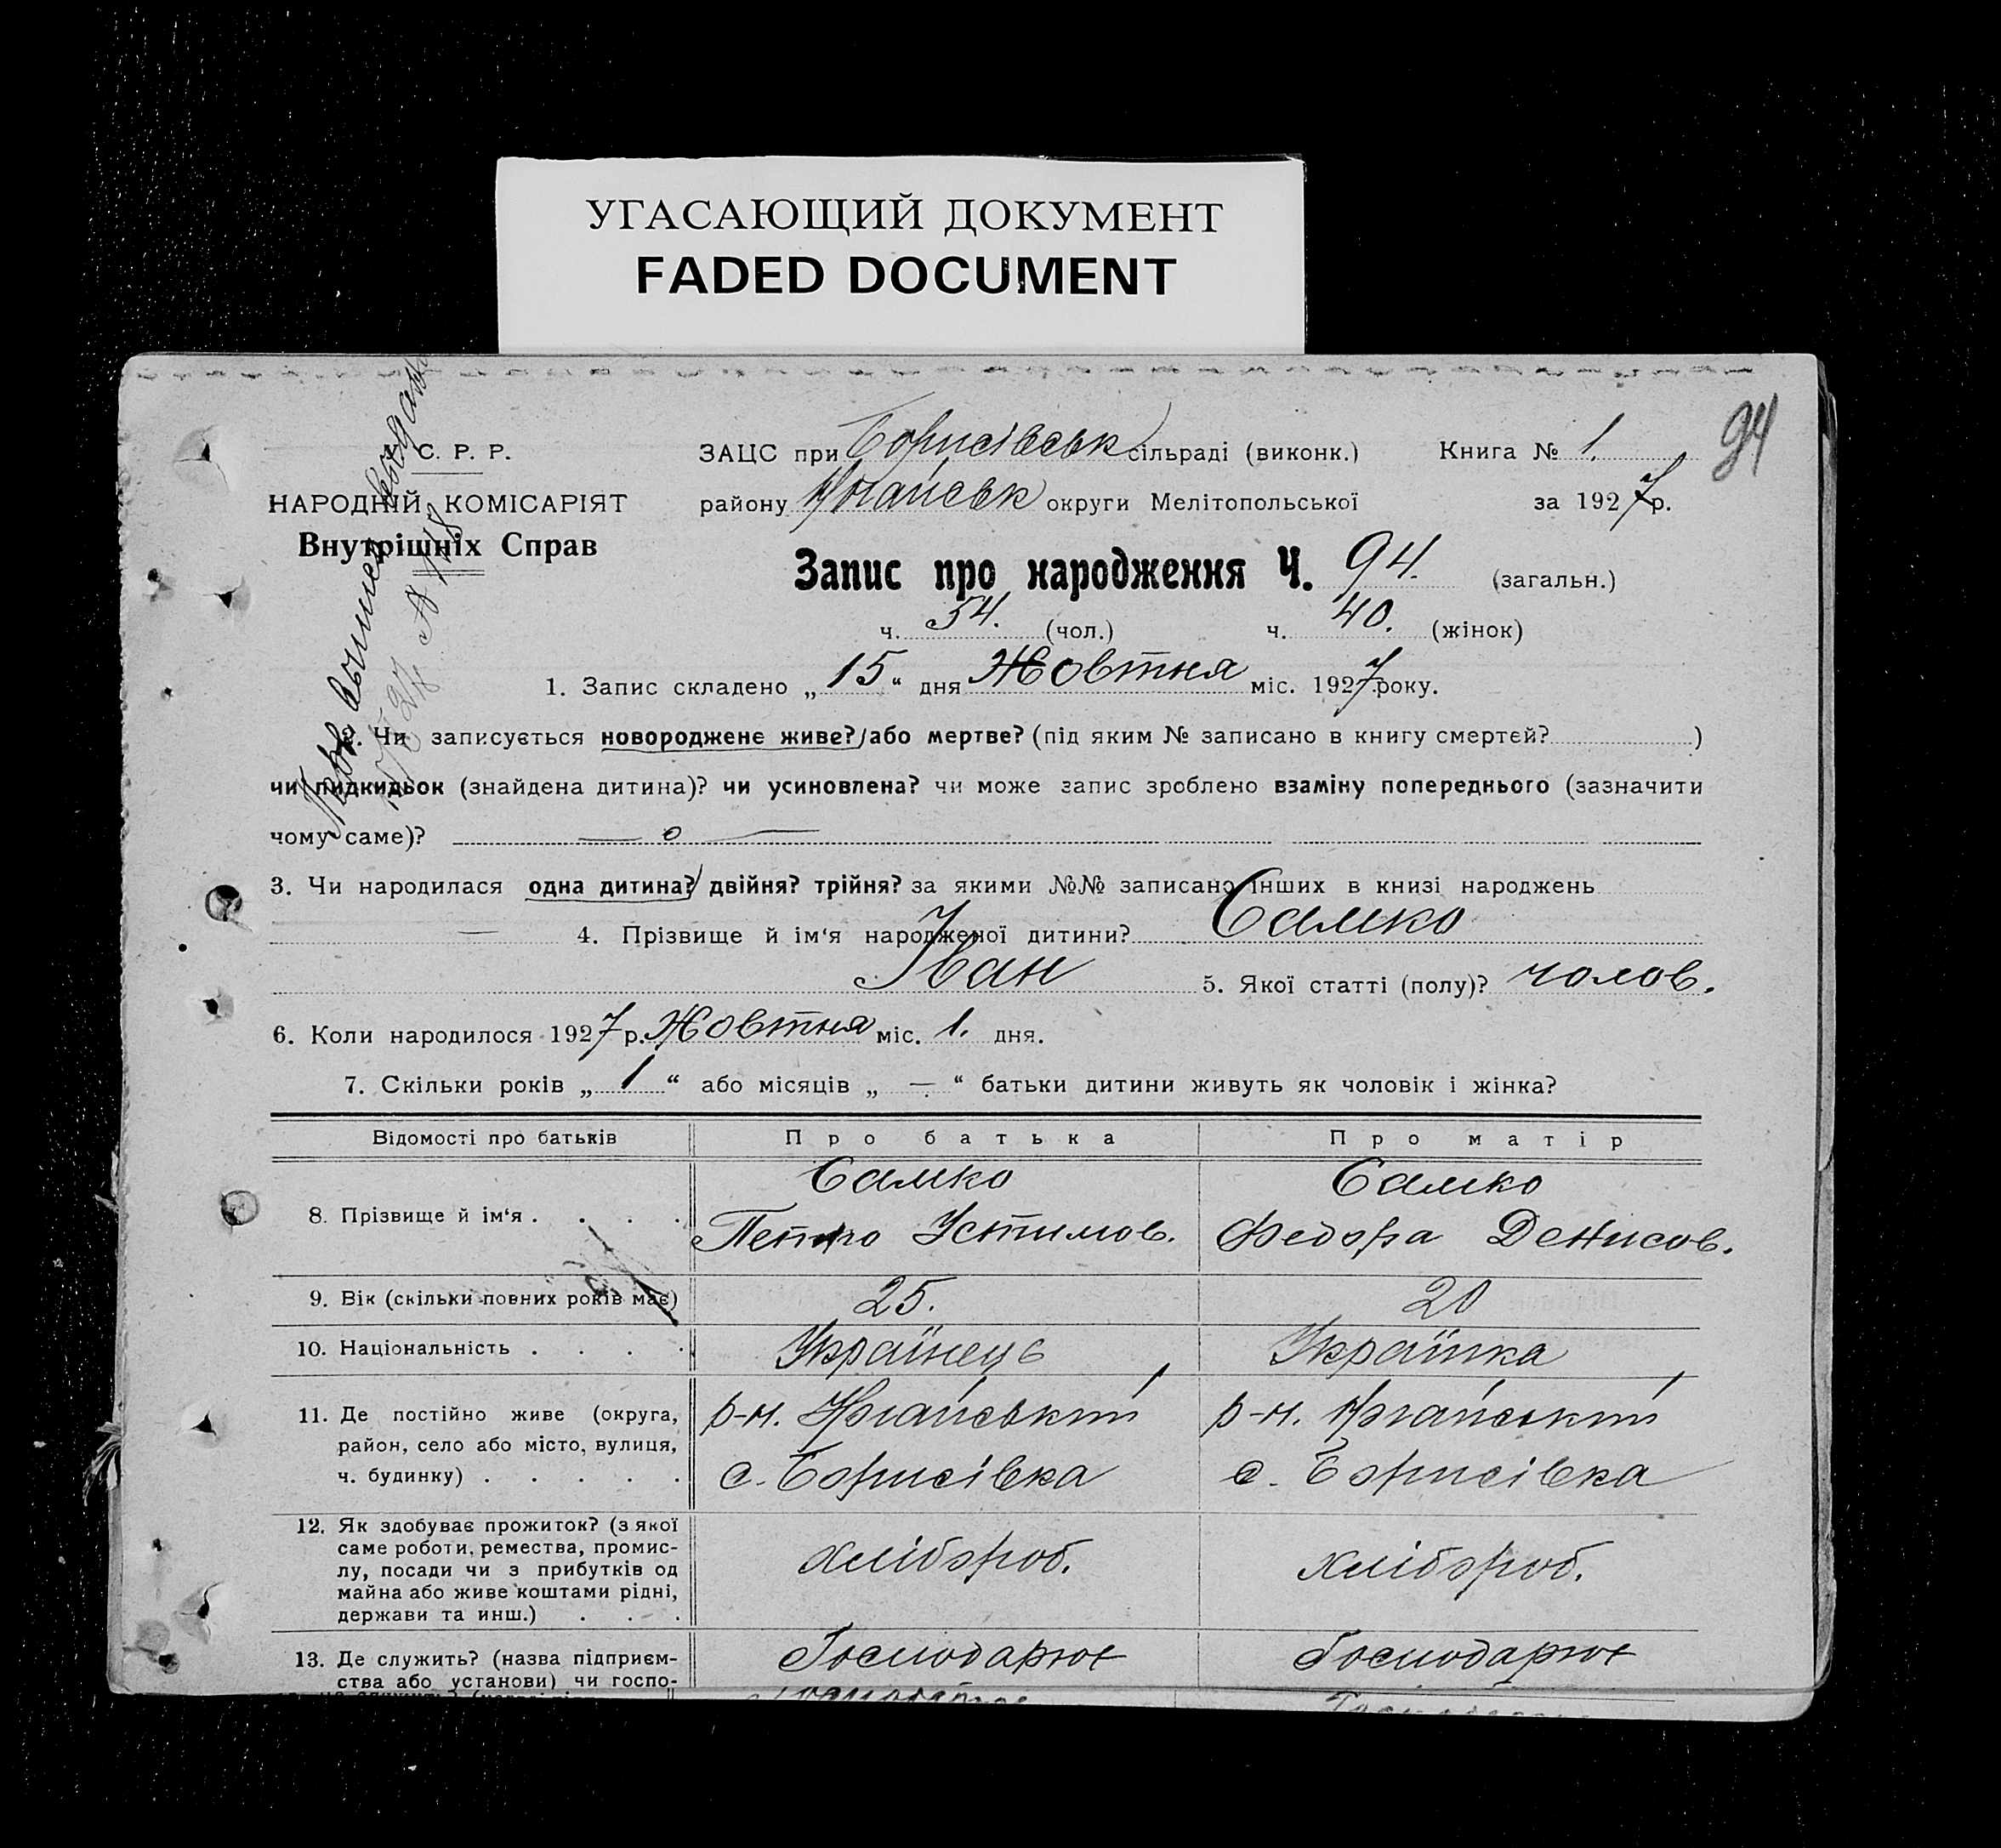 УГАСАЮЩИЙ ДОКУМЕНТ
FADED DOCUMENT
94
У. С. Р. Р.
НАРОДНІЙ КОМІСАРІЯТ
Внутрішніх Справ
ЗАЦС при Борисівськ сільраді (виконк.) Книга № 1.
району Ногайськ округи Мелітопольської за 1927 р.
Запис про народження Ч. 94. (загальн.)
ч. 54. (чол.) ч. 40. (жінок)
1. Запис складено „15“ дня Жовтня міс. 1927 року.
2. Чи записується новороджене живе? або мертве? (під яким № записано в книгу смертей? )
чи підкидьок (знайдена дитина)? чи усиновлена? чи може запис зроблено взаміну попереднього (зазначити
чому саме)? — о —
3. Чи народилася одна дитина? двійня? трійня? за якими №№ записано інших в книзі народжень
— 4. Прізвище й ім‘я народженої дитини? Самко
Іван 5. Якої статті (полу)? чолов.
6. Коли народилося 1927 р. Жовтня міс. 1. дня.
7. Скільки років „1“ або місяців „—“ батьки дитини живуть як чоловік і жінка?
Відомості про батьків Про батька Про матір
8. Прізвище й ім‘я . . . . Самко Петро Устимов. Самко Федора Денисов.
9. Вік (скільки повних років має) 25. 20
10. Національність . . . . Українець Українка
11. Де постійно живе (округа, р-н. Ногайський р-н. Ногайський
район, село або місто, вулиця,
ч. будинку) . . . . . с. Борисівка с. Борисівка
12. Як здобуває прожиток? (з якої
саме роботи, ремества, промис-
лу, посади чи з прибутків од хлібороб. хлібороб.
майна або живе коштами рідні,
держави та инш.) . . .
13. Де служить? (назва підприєм- Господарює Господарює
ства або установи) чи госпо-